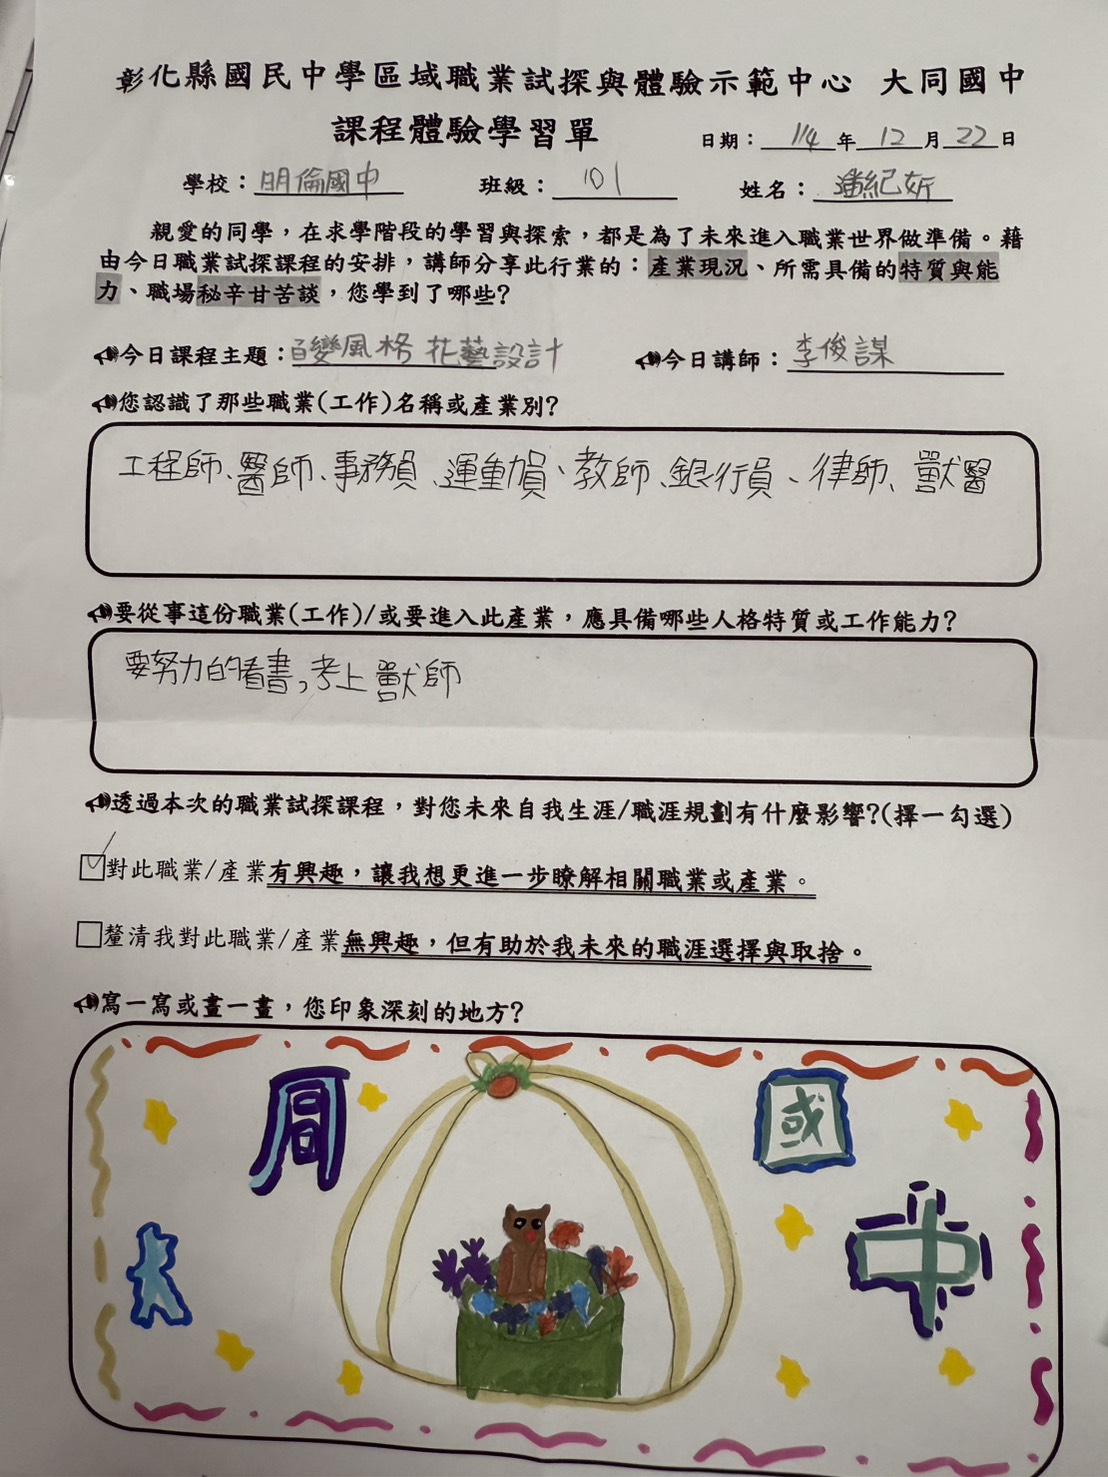 彰化縣國民中學區域職業試探與體驗示範中心 大同國中
課程體驗學習單
日期：114年12月22日
學校：明倫國中 班級：101 姓名：潘紀妡
親愛的同學，在求學階段的學習與探索，都是為了未來進入職業世界做準備。藉
由今日職業試探課程的安排，講師分享此行業的：產業現況、所需具備的特質與能
力、職場秘辛甘苦談，您學到了哪些?
今日課程主題：百變風格 花藝設計 今日講師：李俊謀
您認識了那些職業(工作)名稱或產業別?
工程師、醫師、事務員、運動員、教師、銀行員、律師、獸醫
要從事這份職業(工作)/或要進入此產業，應具備哪些人格特質或工作能力?
要努力的看書,考上獸師
透過本次的職業試探課程，對您未來自我生涯/職涯規劃有什麼影響?(擇一勾選)
☑對此職業/產業有興趣，讓我想更進一步瞭解相關職業或產業。
□釐清我對此職業/產業無興趣，但有助於我未來的職涯選擇與取捨。
寫一寫或畫一畫，您印象深刻的地方?
大同國中